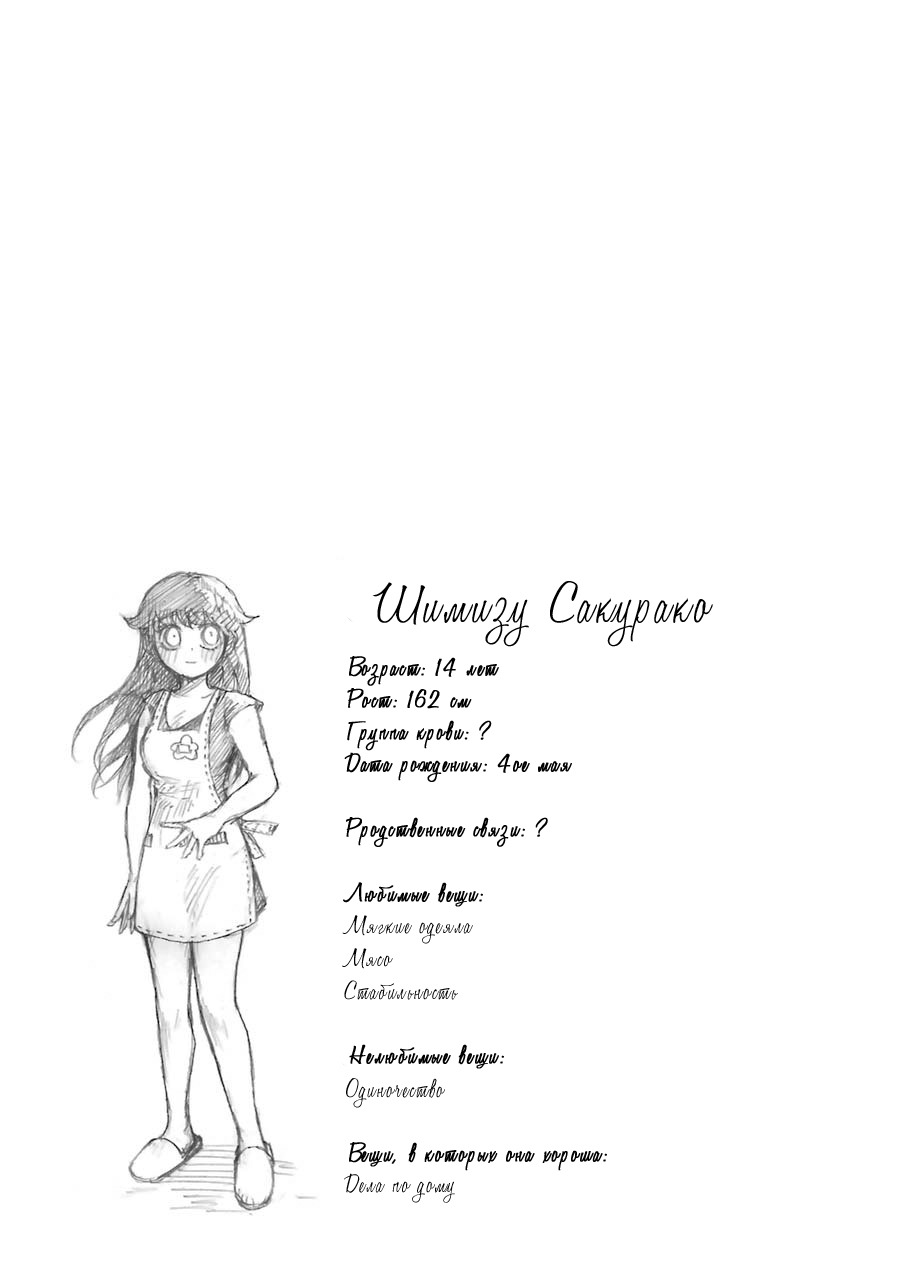 Шимизу Сакурако
Возраст: 14 лет
Рост: 162 см
Группа крови: ?
Дата рождения: 4ое мая
Рродственные связи: ?
Любимые вещи:
Мягкие одеяла
Мясо
Стабильность
Нелюбимые вещи:
Одиночество
Вещи, в которых она хороша:
Дела по дому